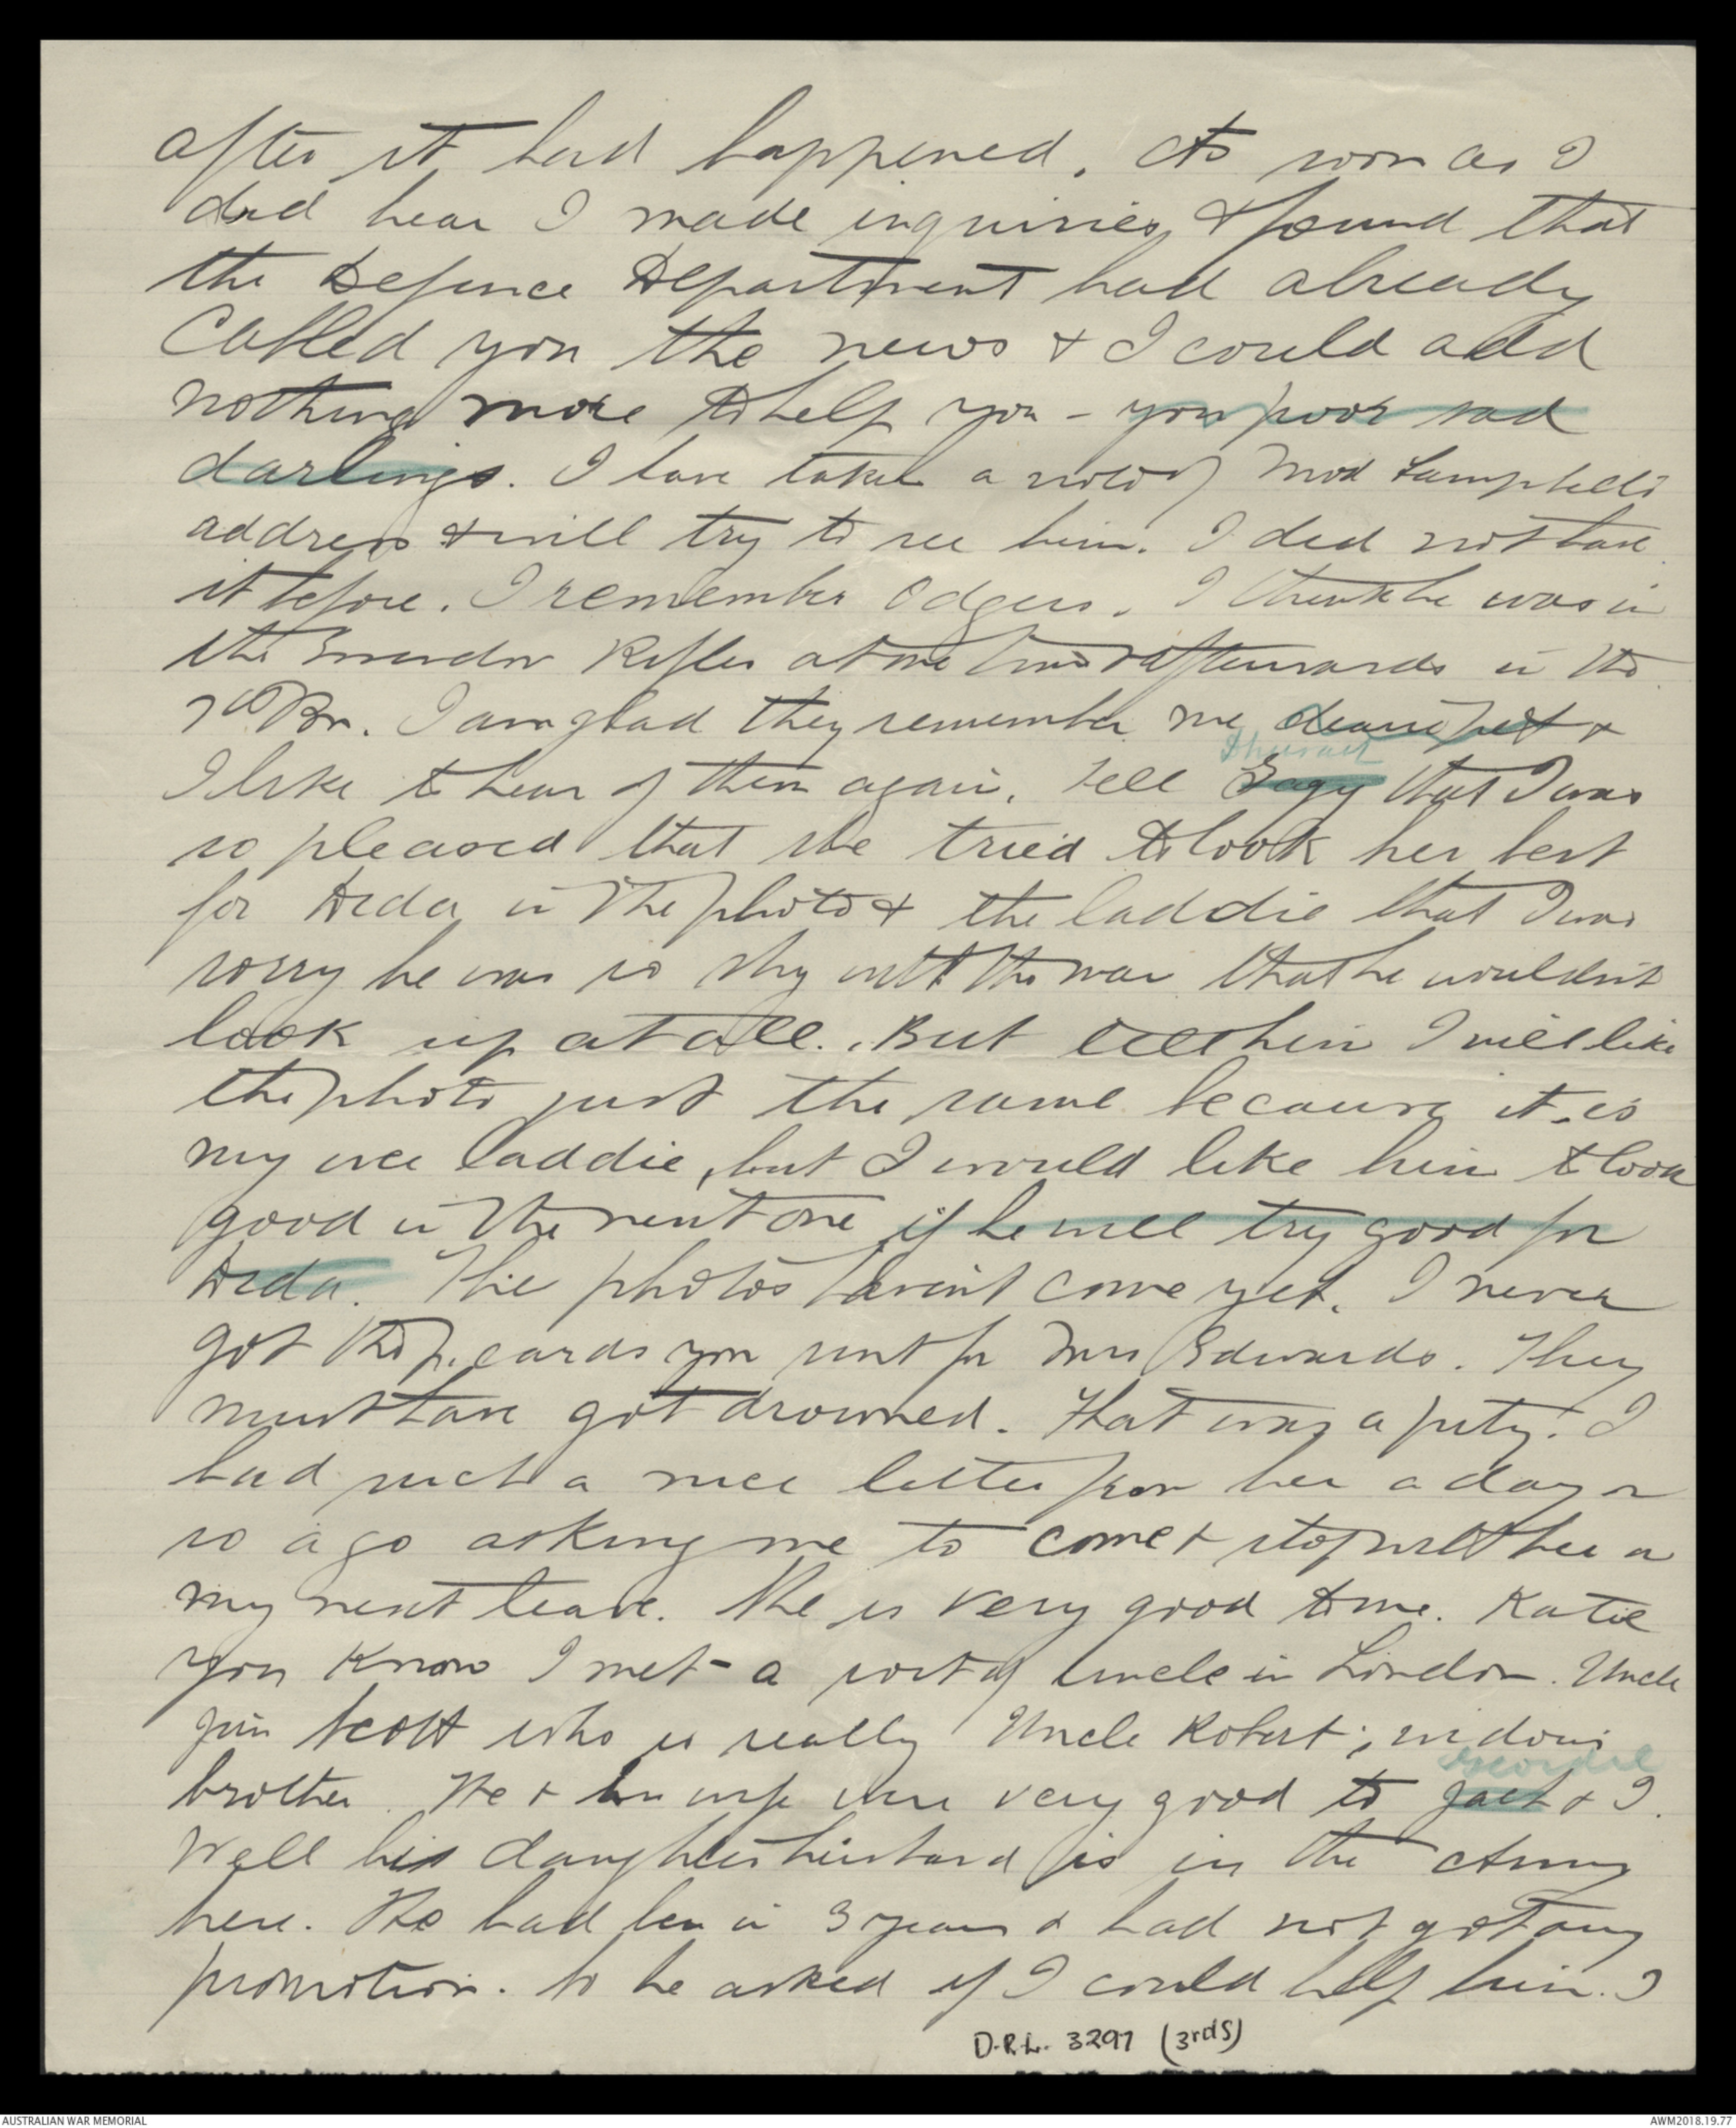 after it had happened. As soon as I
did hear I made inquiries & found that
the Defence Department had already
Cabled you the news & I could add
nothing more to help you - you poor sad
darlings. I have taken a note of Campbells
address & will try to see him. I did not have
it before. I remember Odgers. I think he was in
the Essendon Rifles at one time & afterwards in the
7th Bn. I am glad they remember me &
I like to hear of them again. Tell that I was
so pleased that she tried to look her best
for Dida in the photo & the laddie that I was
sorry he was so shy with the man that he wouldn't
look up at all. But tell him I will like
the photo just the same because it is
my wee laddie, but I would like him to look
good in the next one if he will try good for
Dida. The photos havent come yet. I never
got the p.cards you sent for Mrs Edwards. They
must have got drowned. That was a pity. I
had such a nice letter from her a day or
so ago asking me to come & stop with her on
my next leave. She is very good to me. Katie
you know I met - a sort of Uncle in London. Uncle
Jim Scott who is really Uncle Robert's
brother. He & his wife were very good to Geordie Jack & I.
Well his daughters husband is in the Army
here. He had been in 3 years & had not got any
promotion. So he asked if I could help him. I
D.R.L. 3297 (3rdS)
AUSTRALIAN WAR MEMORIAL
AWM2018.19.77